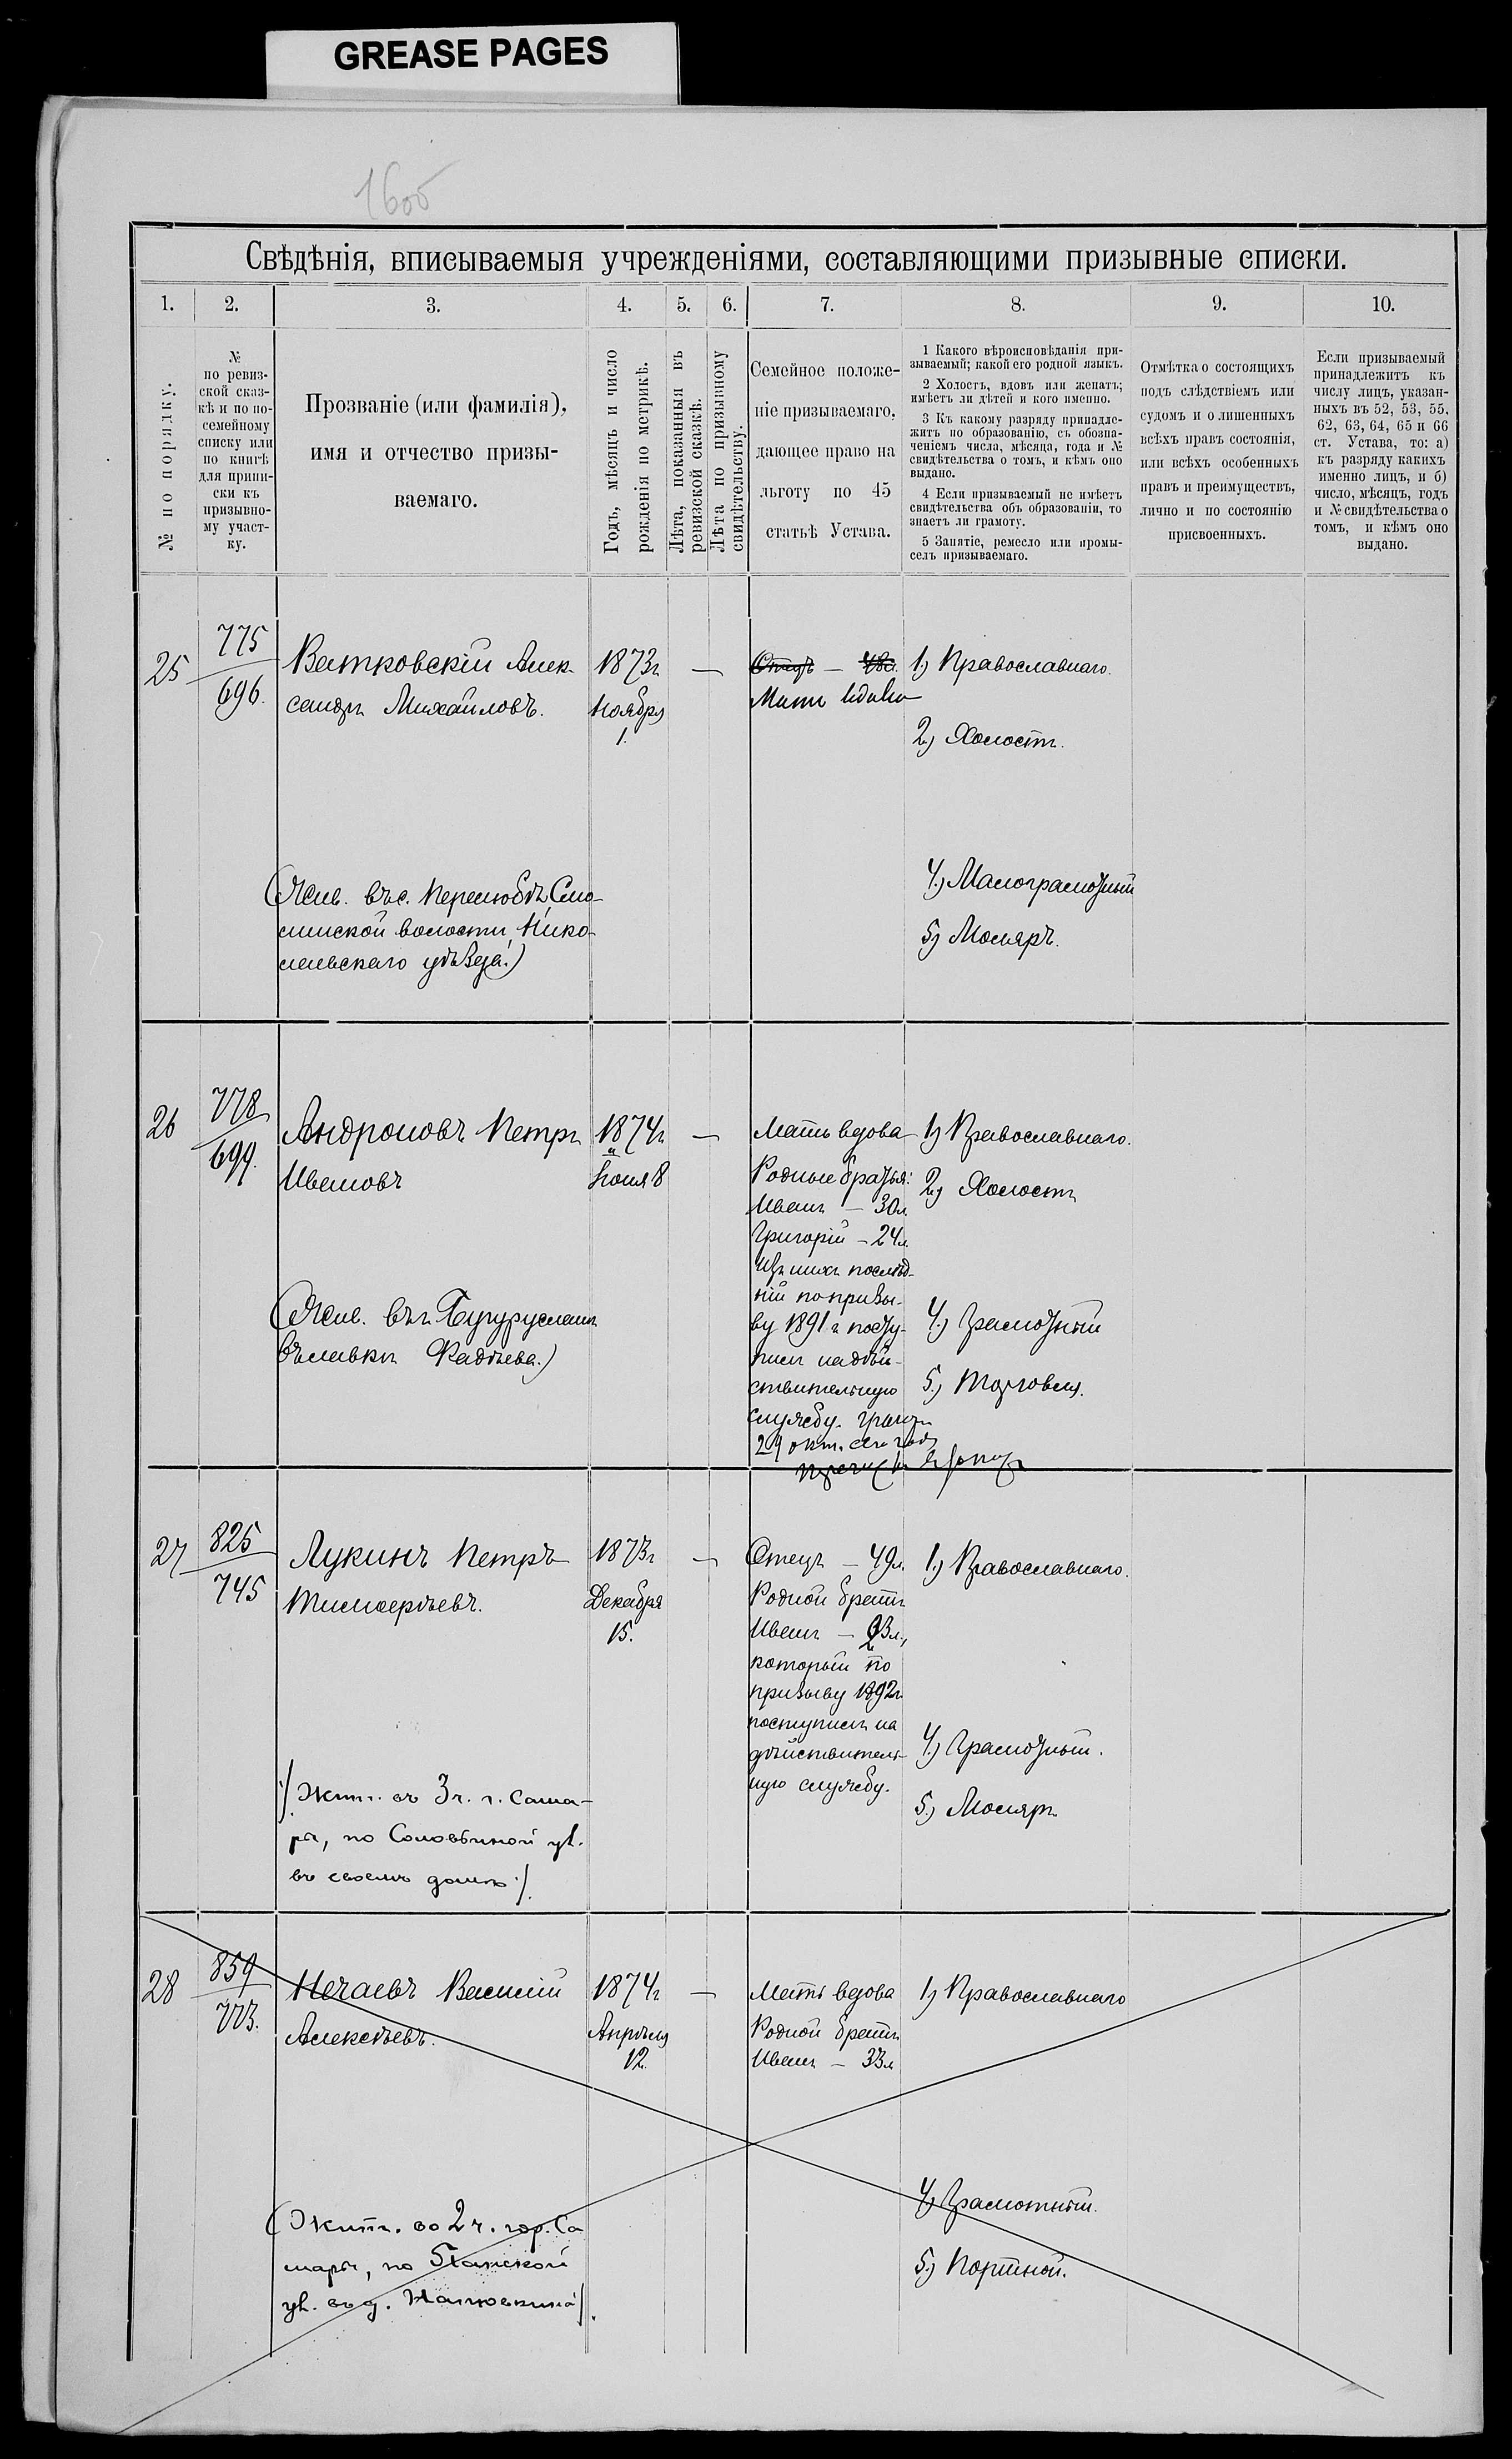 GREASE PAGES
1600
Свѣдѣнія, вписываемыя учрежденіями, составляющими призывные списки.
1.
2.
3.
4.
5.
6.
7.
8.
9.
10.
№ по порядку.
№
по ревиз-
ской сказ-
кѣ и по по-
семейному
списку или
по книгѣ
для припи-
ски къ
призывно-
му участ-
ку.
Прозваніе (или фамилія),
имя и отчество призы-
ваемаго.
Годъ, мѣсяцъ и число
рожденія по метрикѣ.
Лѣта, показанныя въ
ревизской сказкѣ.
Лѣта по призывному
свидѣтельству.
Семейное положе-
ніе призываемаго,
дающее право на
льготу по 45
статьѣ Устава.
1 Какого вѣроисповѣданія при-
зываемый; какой его родной языкъ.
2 Холостъ, вдовъ или женатъ;
имѣетъ ли дѣтей и кого именно.
3 Къ какому разряду принадле-
житъ по образованію, съ обозна-
ченіемъ числа, мѣсяца, года и №
свидѣтельства о томъ, и кѣмъ оно
выдано.
4 Если призываемый не имѣетъ
свидѣтельства объ образованіи, то
знаетъ ли грамоту.
5 Занятіе, ремесло или промы-
селъ призываемаго.
Отмѣтка о состоящихъ
подъ слѣдствіемъ или
судомъ и о лишенныхъ
всѣхъ правъ состоянія,
или всѣхъ особенныхъ
правъ и преимуществъ,
лично и по состоянію
присвоенныхъ.
Если призываемый
принадлежитъ къ
числу лицъ, указан-
ныхъ въ 52, 53, 55,
62, 63, 64, 65 и 66
ст. Устава, то: а)
къ разряду какихъ
именно лицъ, и б)
число, мѣсяцъ, годъ
и № свидѣтельства о
томъ, и кѣмъ оно
выдано.
25
775
696.
Ватковскій Алек-
сандръ Михайловъ.
(Жив. въ с. Перелюбѣ, Смо-
линской волости, Нико-
лаевскаго уѣзда.)
1873г
Ноября
1.
—
Отецъ — 48л.
Мать вдова
1) Православнаго.
2) Холостъ.
4.) Малограмотный
5) Маляръ.
26
778
699.
Андроновъ Петръ
Ивановъ
(Жив. въ г. Бугурусланѣ
въ лавкѣ Фадѣева.)
1874г
Іюня 8
—
Мать вдова
Родные братья:
Иванъ — 30л
Григорій — 24л.
Изъ нихъ послѣд-
ній по призы-
ву 1891 г. посту-
пилъ на дѣй-
ствительную
службу.
29 окт. сего года
1) Православнаго.
2) Холостъ
4.) Грамотный
5.) Торговля.
27
825
745
Лукинъ Петръ
Тимофеѣевъ.
/Жит. въ 3 ч. г. Сама-
ры, по Соловьиной ул.
въ своемъ домѣ/.
1873г
Декабря
15.
—
Отецъ — 49л.
Родной братъ
Иванъ — 23л.,
который по
призыву 1892г
поступилъ на
дѣйствитель-
ную службу.
1.) Православнаго.
4.) Грамотный.
5.) Маляръ
28
859
773.
Нечаевъ Василій
Алексѣевъ.
(Жит. во 2 ч. гор. Са
мары, по
ул. въ д.
1874г
Апрѣля
12.
—
Мать вдова
Родной братъ
Иванъ — 33л
1) Православнаго
4) Грамотный.
5.) Портной.